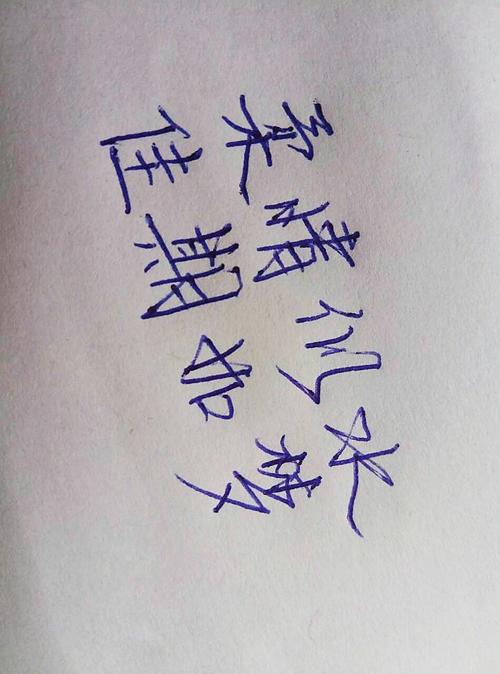 柔情似水
佳期如梦